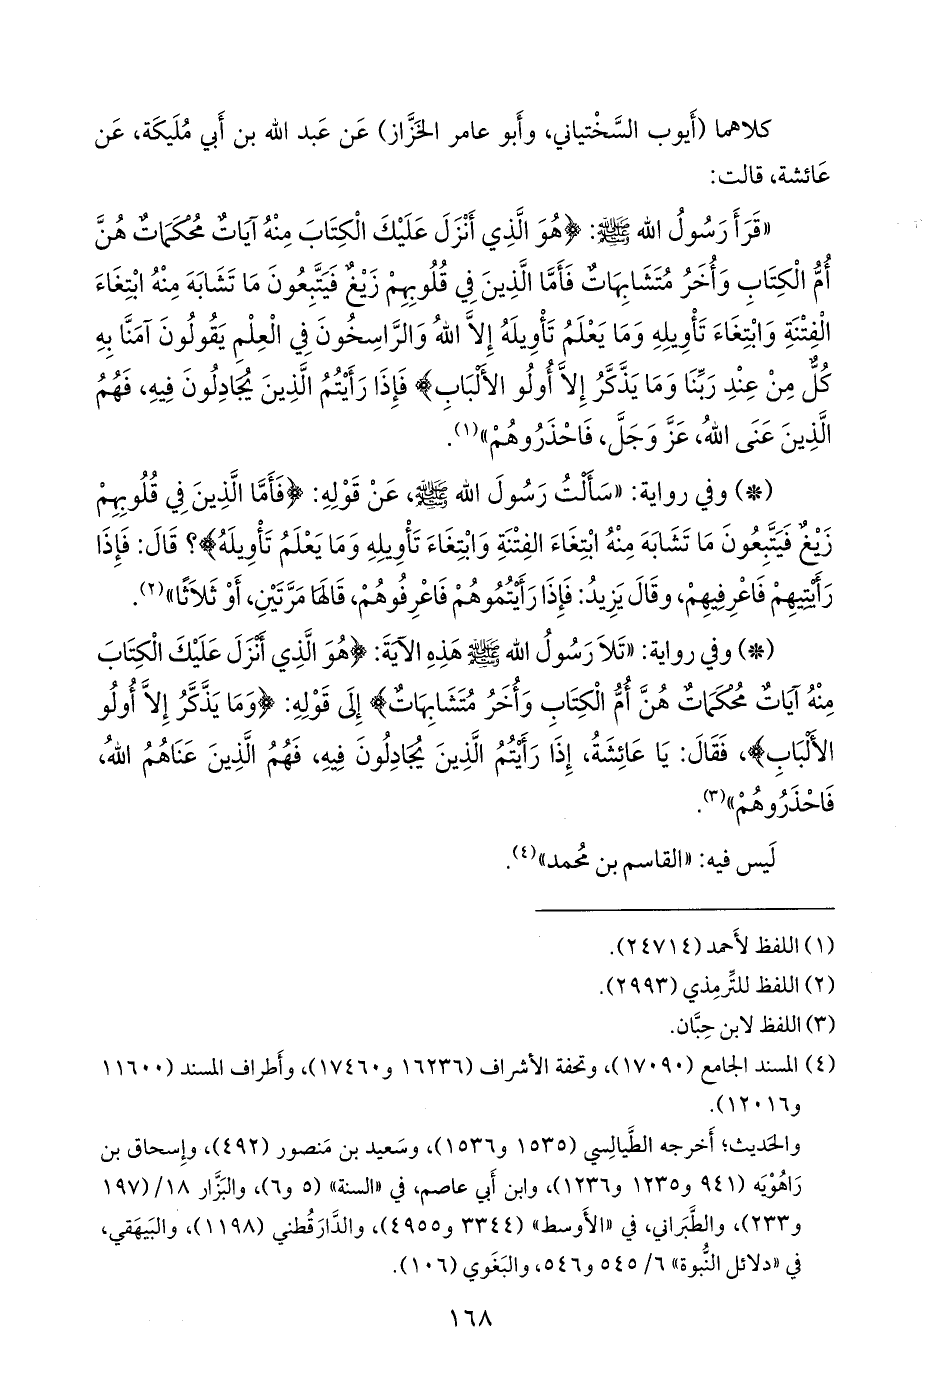 كلاهما (أَيوب السَّخْتياني، وأَبو عامر الخَزَّاز) عَن عَبد الله بن أَبي مُلَيكَة، عَن
عَائشة، قالت:
«قَرَأَ رَسُولُ الله ﷺ: ﴿هُوَ الَّذِي أَنْزَلَ عَلَيْكَ الْكِتَابَ مِنْهُ آيَاتٌ مُحْكَمَاتٌ هُنَّ
أُمُّ الْكِتَابِ وَأُخَرُ مُتَشَابِهَاتٌ فَأَمَّا الَّذِينَ فِي قُلُوبِهِمْ زَيْغٌ فَيَتَّبِعُونَ مَا تَشَابَهَ مِنْهُ ابْتِغَاءَ
الْفِتْنَةِ وَابْتِغَاءَ تَأْوِيلِهِ وَمَا يَعْلَمُ تَأْوِيلَهُ إِلاَّ اللهُ وَالرَّاسِخُونَ فِي الْعِلْمِ يَقُولُونَ آمَنَّا بِهِ
كُلٌّ مِنْ عِنْدِ رَبِّنَا وَمَا يَذَّكَّرُ إِلاَّ أُولُو الأَلْبَابِ﴾ فَإِذَا رَأَيْتُمُ الَّذِينَ يُجَادِلُونَ فِيهِ، فَهُمُ
الَّذِينَ عَنَى اللهُ، عَزَّ وَجَلَّ، فَاحْذَرُوهُمْ»(١).
(*) وفي رواية: «سَأَلْتُ رَسُولَ الله ﷺ، عَنْ قَوْلِهِ: ﴿فَأَمَّا الَّذِينَ فِي قُلُوبِهِمْ
زَيْغٌ فَيَتَّبِعُونَ مَا تَشَابَهَ مِنْهُ ابْتِغَاءَ الفِتْنَةِ وَابْتِغَاءَ تَأْوِيلِهِ وَمَا يَعْلَمُ تَأْوِيلَهُ﴾؟ قَالَ: فَإِذَا
رَأَيْتِيهِمْ فَاعْرِفِيهِمْ، وقَالَ يَزِيدُ: فَإِذَا رَأَيْتُمُوهُمْ فَاعْرِفُوهُمْ، قَالَهَا مَرَّتَيْنِ، أَوْ ثَلاَثًا»(٢).
(*) وفي رواية: «تَلاَ رَسُولُ الله ﷺ هَذِهِ الآيَةَ: ﴿هُوَ الَّذِي أَنْزَلَ عَلَيْكَ الْكِتَابَ
مِنْهُ آيَاتٌ مُحْكَمَاتٌ هُنَّ أُمُّ الْكِتَابِ وَأُخَرُ مُتَشَابِهَاتٌ﴾ إِلَى قَوْلِهِ: ﴿وَمَا يَذَّكَّرُ إِلاَّ أُولُو
الأَلْبَابِ﴾، فَقَالَ: يَا عَائِشَةُ، إِذَا رَأَيْتُمُ الَّذِينَ يُجَادِلُونَ فِيهِ، فَهُمُ الَّذِينَ عَنَاهُمُ اللهُ،
فَاحْذَرُوهُمْ»(٣).
لَيس فيه: «القاسم بن مُحمد»(٤).
(١) اللفظ لأَحمد (٢٤٧١٤).
(٢) اللفظ للتِّرمِذي (٢٩٩٣).
(٣) اللفظ لابن حِبَّان.
(٤) المسند الجامع (١٧٠٩٠)، وتحفة الأشراف (١٦٢٣٦ و١٧٤٦٠)، وأَطراف المسند (١١٦٠٠
و١٢٠١٦).
والحَديث؛ أَخرجه الطَّيالِسي (١٥٣٥ و١٥٣٦)، وسَعيد بن مَنصور (٤٩٢)، وإِسحاق بن
رَاهُوْيَه (٩٤١ و١٢٣٥ و١٢٣٦)، وابن أَبي عاصم، في «السنة» (٥ و٦)، والبَزَّار ١٨/ (١٩٧
و٢٣٣)، والطَّبَراني، في «الأَوسط» (٣٣٤٤ و٤٩٥٥)، والدَّارَقُطني (١١٩٨)، والبَيهَقي،
في «دلائل النُّبوة» ٦/ ٥٤٥ و٥٤٦، والبَغَوي (١٠٦).
١٦٨